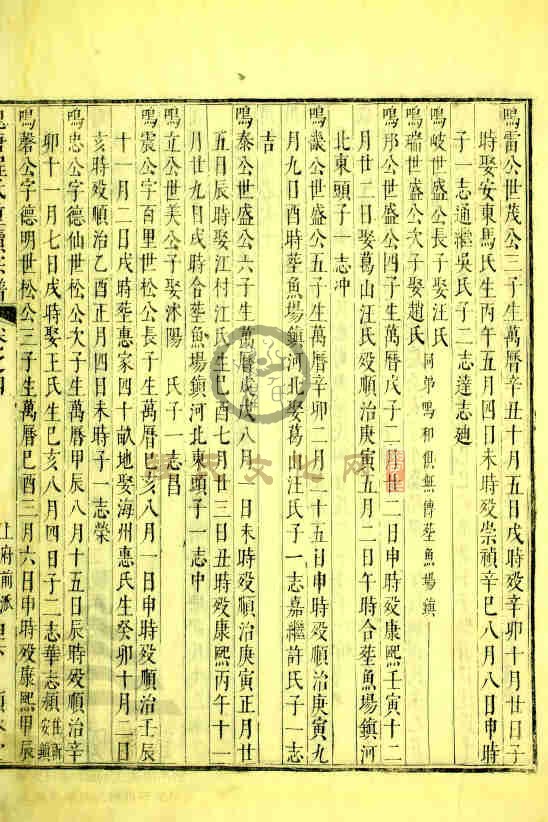 鳴雷公世茂公三子生萬曆辛丑十月五日戌時歿辛卯十月廿日子
時娶安東馬氏生丙午五月四日未時歿崇禎辛巳八月八日申時
子一志通繼吳氏子二志達志廸
鳴岐世盛公長子娶汪氏
鳴瑞世盛公次子娶趙氏 同弟鳴和俱無傳葬魚場鎮
鳴那公世盛公四子生萬曆戊子二月廿二日申時歿康熙壬寅十二
月廿二日娶葛山汪氏歿順治庚寅五月二日午時合葬魚場鎮河
北東頭子一志冲
鳴 公世盛公五子生萬曆辛卯二月二十五日申時歿順治庚寅九
月九日酉時葬魚場鎮河北娶葛山汪氏子一志嘉繼許氏子一志
吉
鳴泰公世盛公六子生萬曆戊戌八月 日未時歿順治庚寅正月廿
五日辰時娶江村江氏生己酉七月廿三日丑時歿康熙丙午十一
月廿九日戌時合葬魚場鎮河北東頭子一志中
鳴立公世美公子娶沭陽 氏子一志昌
鳴震公字百里世松公長子生萬曆己亥八月一日申時歿順治壬辰
十一月二日戌時葬惠家四十畝地娶海州惠氏生癸卯十月二日
亥時歿順治乙酉正月四日未時子一志榮
鳴忠公字德仙世松公次子生萬曆甲辰八月十五日辰時歿順治辛
卯十一月七日戌時娶王氏生乙亥八月四日子二志華志禎 住新安鎮
鳴磬公字德明世松公三子生萬曆己酉三月六日申時歿康熙甲辰
上府前派